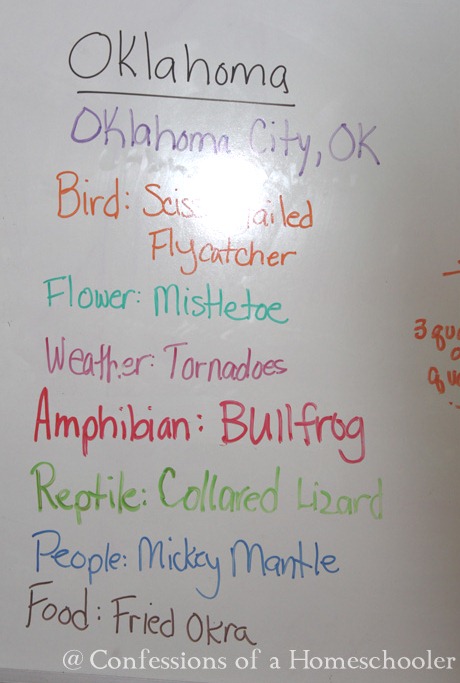 Oklahoma
Oklahoma City, OK
Bird: Tailed
Flycatcher
Flower: Mistletoe
Weather: Tornadoes
Amphibian: Bullfrog
Reptile: Collared Lizard
People: Mickey Mantle
Food: Fried Okra
3
@ Confessions of a Homeschooler